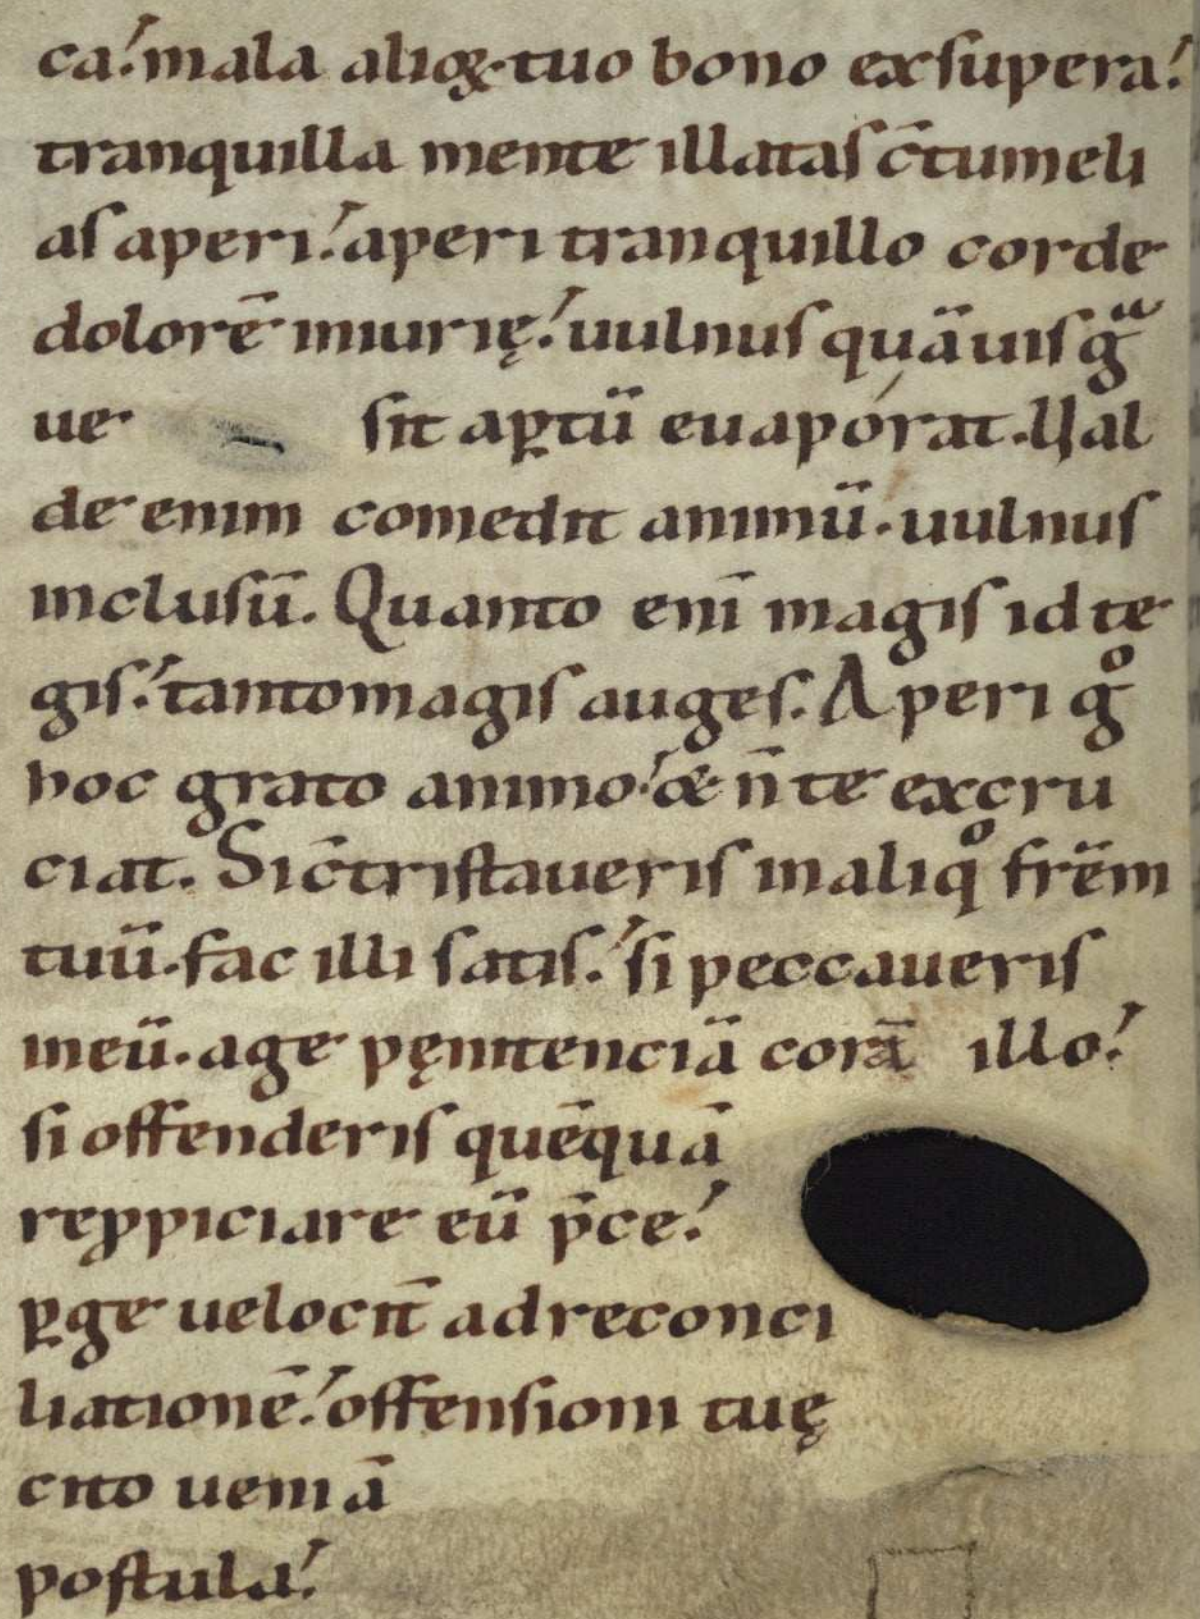 ca. mala alioꝝ. tuo bono exsupera.
tranquilla mente illatas c̄tumeli
as aperi. aperi tranquillo corde
dolorē iniurię. uulnus quāuis gͣ
ue sit aꝑtū euapórat. Ual
de enim comedit animū. uulnus
inclusū. Quanto eni̅ magis id te
gis. tanto magis auges. Aperi gͦ
hoc grato animo. & n̄ te excru
ciat. Si c̄tristaueris in aliqͦ frēm
tuū. fac illi satis. si peccaueris
in eū. age pęnitenciā corā illo.
si offenderis quēquā
reꝓpiciare eū p̄ce.
ꝑge uelocit̄ ad reconci
liationē. offensioni tuę
cito ueniā
postula.